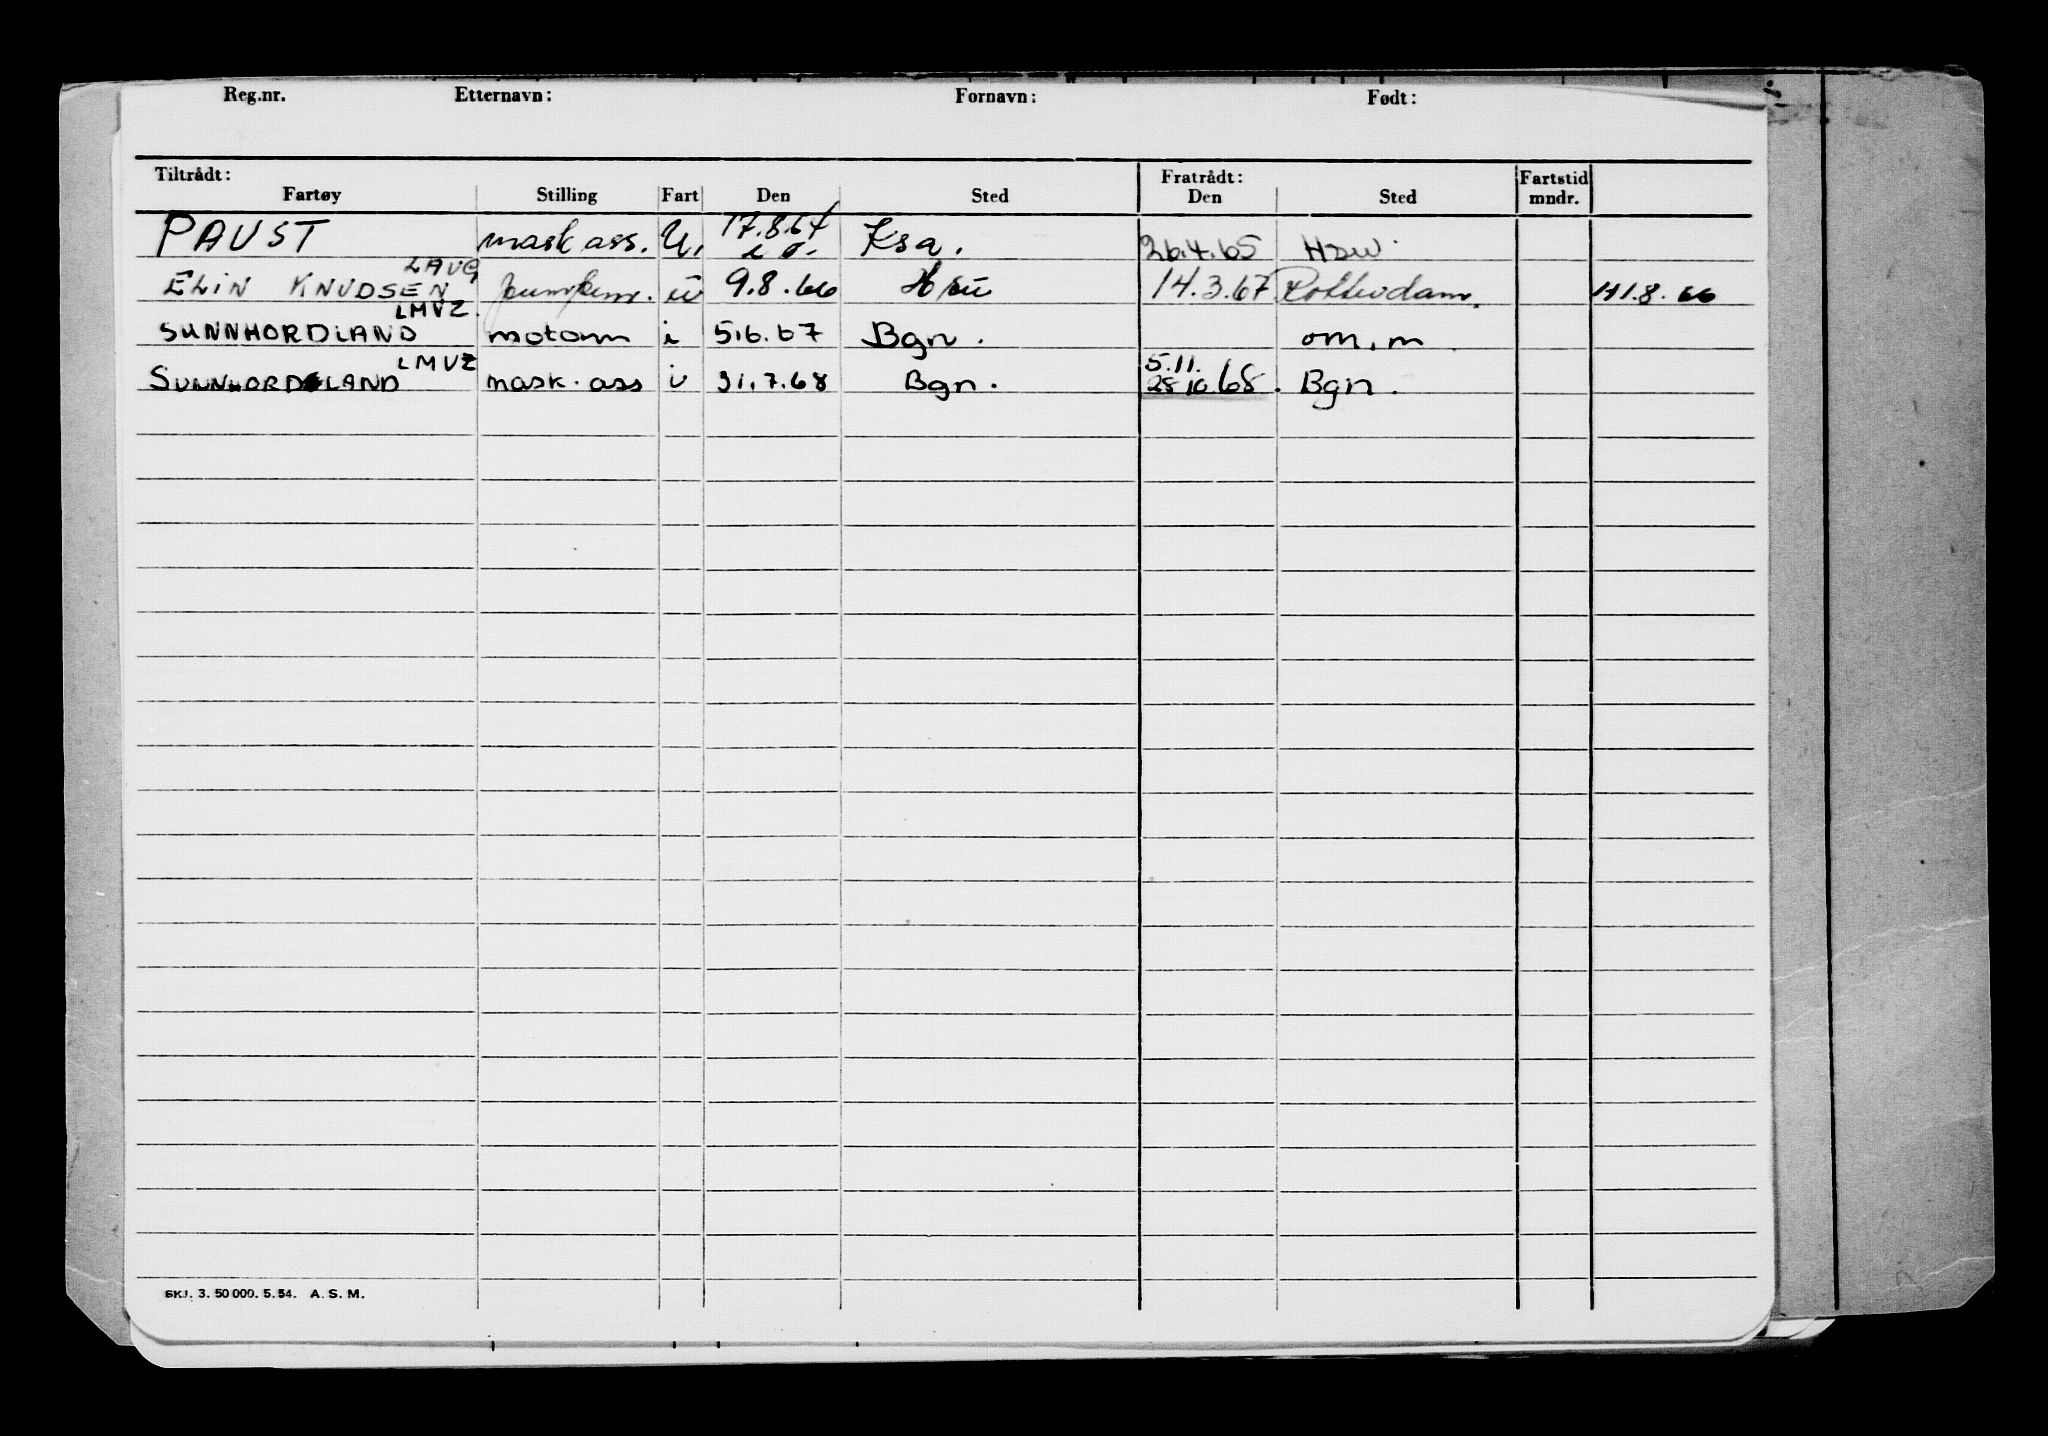 Reg.nr. Etternavn: Fornavn: Født:
Tiltrådt: Fratrådt: Fartstid
Fartøy Stilling Fart Den Sted Den Sted mndr.
PAUST mask ass. U. 17.8.64 Ksa. 26.4.65
LAVG
ELIN KNUDSEN pumpem. u 9.8.66 14.3.67 Rotterdam. 11.8.66
LMVZ.
SUNNHORDLAND motorm i 5.6.67 Bgn. om.m
LMVZ 5.11.
SUNNHORDLAND mask. ass i 31.7.68 Bgn. 28 10.68. Bgn.
SKJ. 3. 50 000. 5. 54. A. S. M.